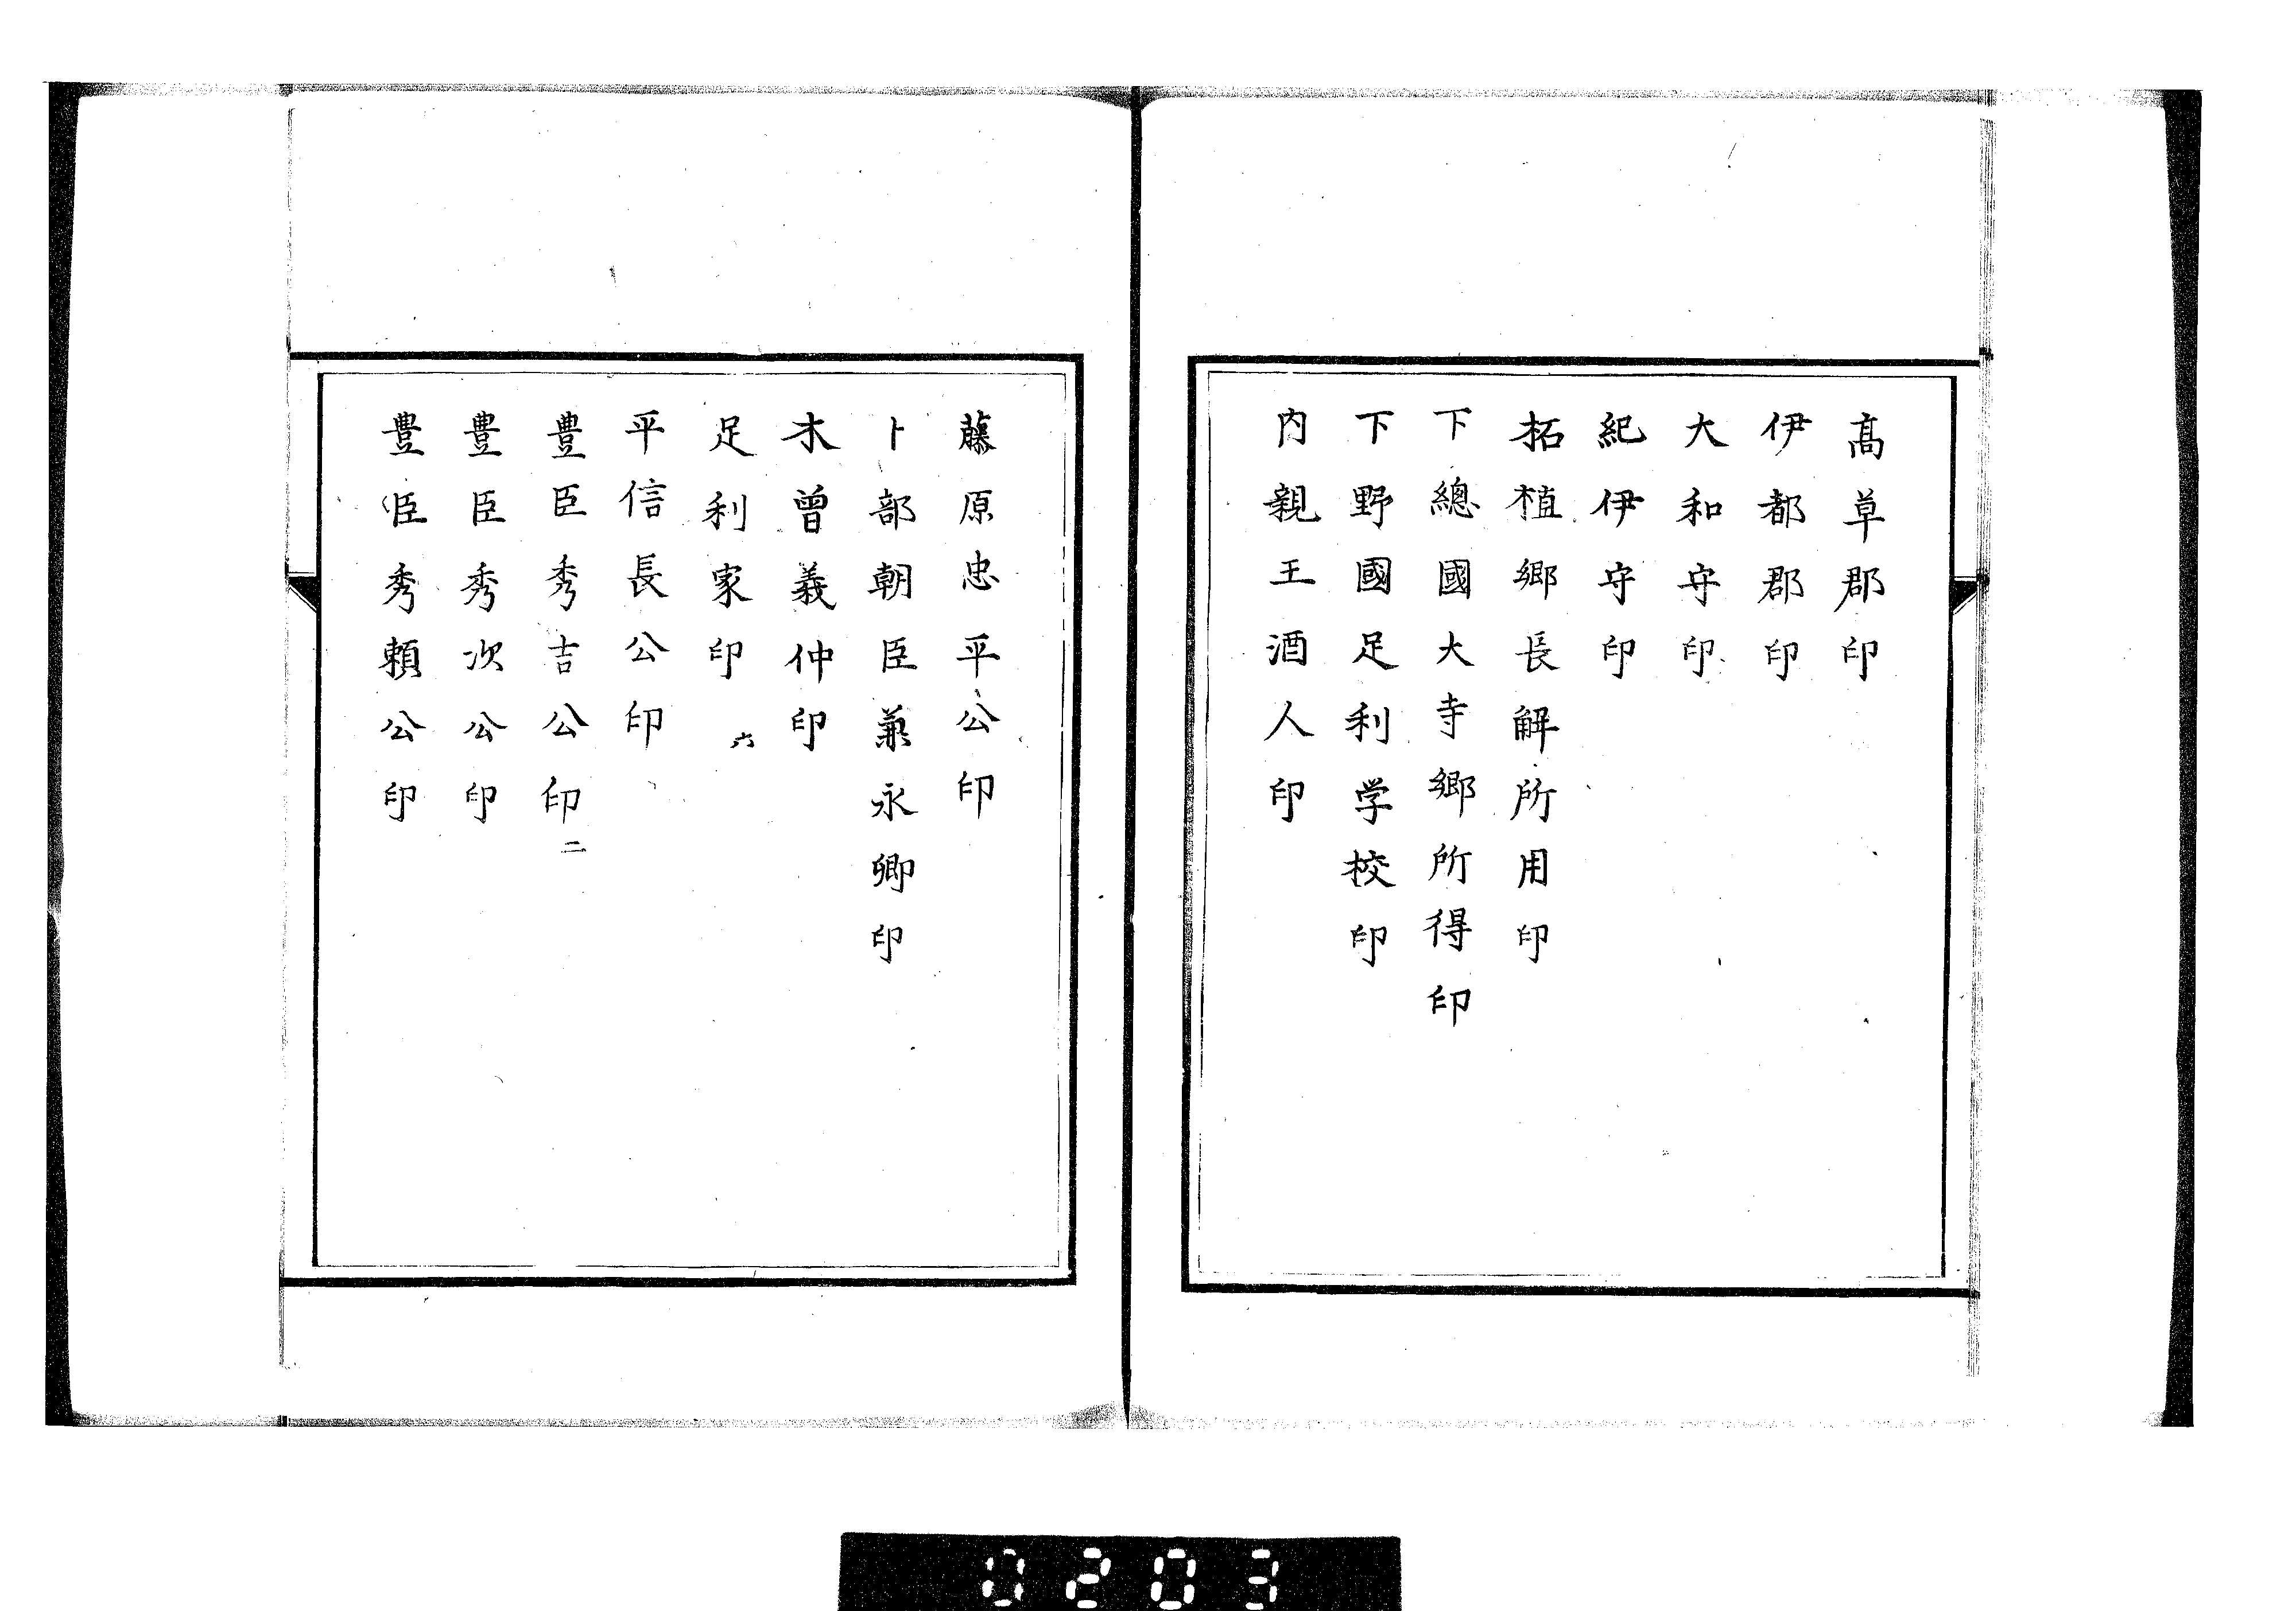 髙草郡印
伊都郡印
大和守印
紀伊守印
拓植郷長解所用印
下總國大寺郷所得印
下野國足利学校印
内親王酒人印
藤原忠平公印
卜部朝臣兼永卿印
木曾義仲印
足利家印 六
平信長公印
豊臣秀吉公印 二
豊臣秀次公印
豊臣秀頼公印
0203